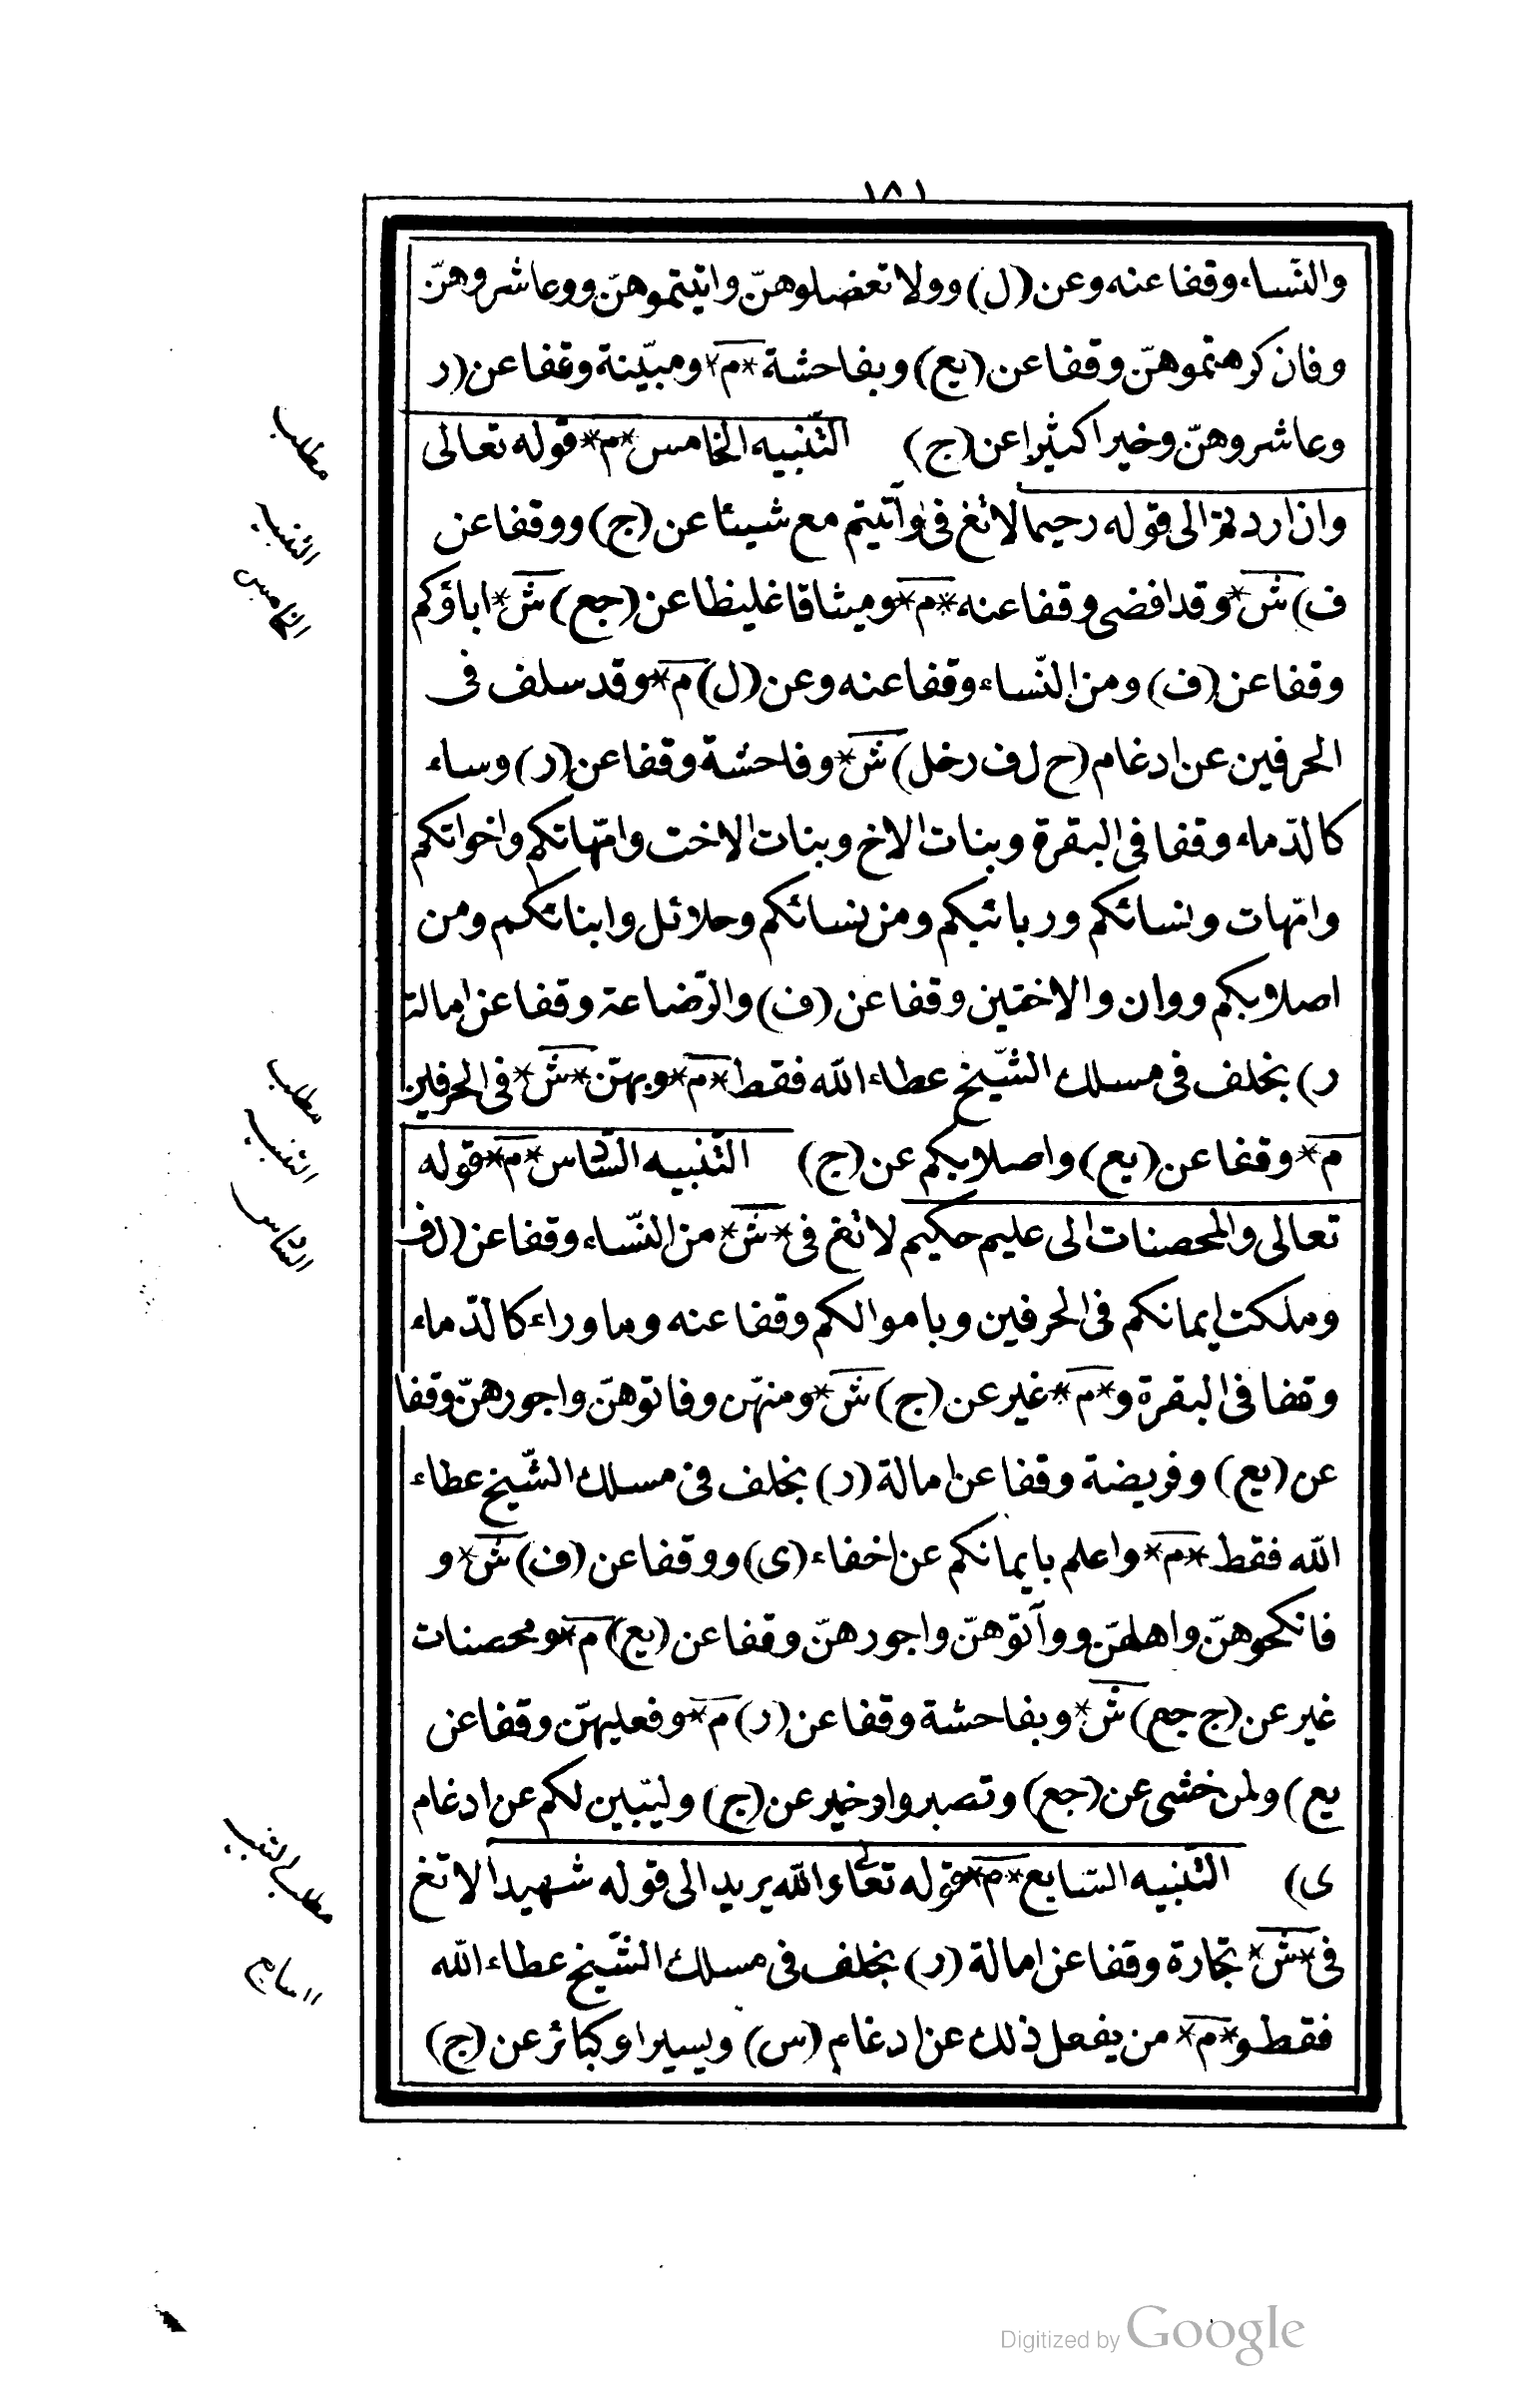 ١٨١
والنّساء وقفا عنه وعن (ل) وولا تعضلوهنّ واتيتموهنّ ووعاشروهنّ
وفان كرهتموهنّ وقفا عن (يع) وبفاحشة *م* ومبيّنة وقفا عن (ر
وعاشروهنّ وخيرا كثيرا عن (ج) التّنبيه الخامس *م* قوله تعالى
وان اردتم الى قوله رحيما لا تغ فى وآتيتم مع شيئا عن (ج) ووقفا عن
ف) ش* وقد افضى وقفا عنه *م* وميثاقا غليظا عن (جع) ش* اباؤكم
وقفا عن (ف) ومن النّساء وقفا عنه وعن (ل) م* وقد سلف فى
الحرفين عن ادغام (ح ل ف رخل) ش* وفاحشة وقفا عن (ر) وساء
كالدّماء وقفا فى البقرة وبنات الاخ وبنات الاخت وامّهاتكم واخواتكم
وامّهات ونسائكم وربائبكم ومن نسائكم وحلائل وابنائكم ومن
اصلابكم ووان والاختين وقفا عن (ف) والرّضاعة وقفا عن امالة
ر) بخلف فى مسلك الشّيخ عطاء الله فقط *م* وبهنّ *ش* فى الحرفين
م* وقفا عن (يع) واصلابكم عن (ج) التّنبيه السّادس *م* قوله
تعالى والمحصنات الى عليم حكيم لا تغ فى *ش* من النّساء وقفا عن (ل ف
وملكت ايمانكم فى الحرفين وباموالكم وقفا عنه وما وراء كالدّماء
وقفا فى البقرة و *م* غير عن (ج) ش* ومنهنّ وفاتوهنّ واجورهنّ وقفا
عن (يع) وفريضة وقفا عن امالة (ر) بخلف فى مسلك الشّيخ عطاء
الله فقط *م* واعلم بايمانكم عن اخفاء (ى) ووقفا عن (ف) ش* و
فانكحوهنّ واهلهنّ ووآتوهنّ واجورهنّ وقفا عن (يع) م* ومحصنات
غير عن (ج جع) ش* وبفاحشة وقفا عن (ر) م* وفعليهنّ وقفا عن
يع) ولمن خشى عن (جع) وتصبروا وخير عن (ج) وليبّين لكم عن ادغام
ى) التّنبيه السّابع *م* قوله تعالى والله يريد الى قوله شهيدا لا تغ
فى *ش* تجارة وقفا عن امالة (ر) بخلف فى مسلك الشّيخ عطاء الله
فقط و *م* من يفعل ذلك عن ادغام (س) ويسيرا وكبائر عن (ج)
مطلب
التنبيه
الخامس
مطلب
التنبيه
السّادس
مطلب التنبيه
السابع
Digitized by Google